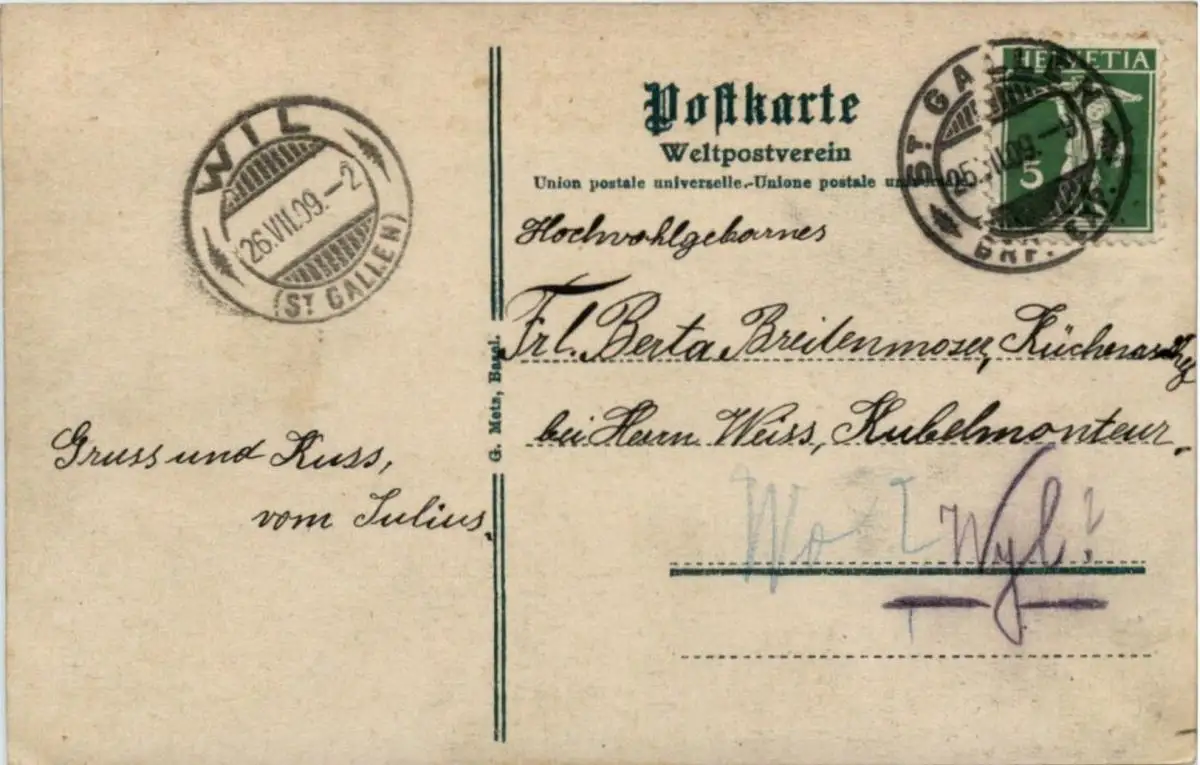 WIL
26.VII.09.-2
(ST GALLEN)
Gruss und Kuss,
vom Julius.
G. Metz, Basel.
Postkarte
Weltpostverein
Union postale universelle.-Unione postale
HELVETIA
5
ST. GALLEN
25.VII.09.-
BRF.
Hochwohlgebornes
Frl. Berta Breitenmoser,
bei Herrn Weiss, Kubelmonteur,
Wo? Wyl?